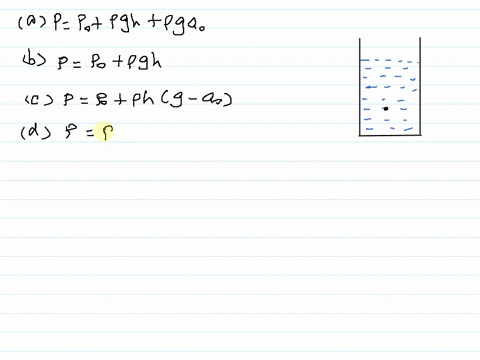 (a) P = P₀ + ρgh + ρga₀
(b) P = P₀ + ρgh
(c) P = P₀ + ρh(g - a₀)
(d) P = P